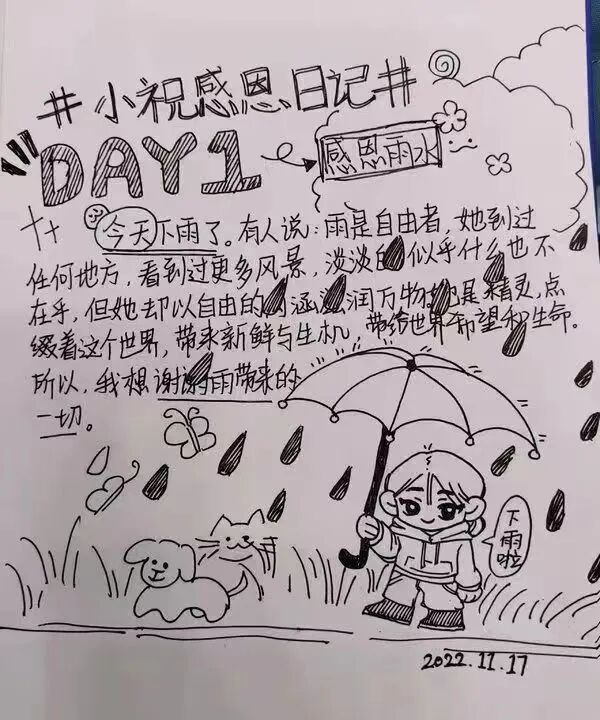 #小祝感恩日记#
DAY1
感恩雨水
今天下雨了。有人说：雨是自由者，她到过
任何地方，看到过更多风景，淡淡的似乎什么也不
在乎，但她却以自由的内涵滋润万物。她是精灵，点
缀着这个世界，带来新鲜与生机，带给世界希望和生命。
所以，我想谢谢雨带来的
一切。
下雨啦
2022.11.17